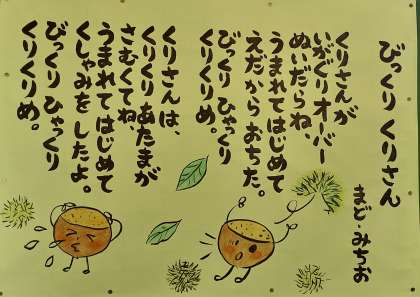 びっくり くりさん
まど・みちお
くりさんが
いがぐりオーバー
ぬいだらね、
うまれてはじめて
えだから おちた。
びっくり ひゃっくり
くりくりめ。
くりさんは、
くりくり あたまが
さむくてね、
うまれてはじめて
くしゃみを したよ。
びっくり ひゃっくり
くりくりめ。